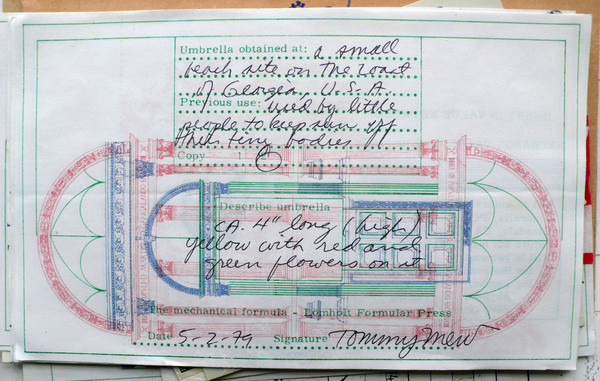 Umbrella obtained at: a small
beach site on the coast
of Georgia, U.S.A
Previous use: used by little
people to keep sun off
their tiny bodies
Copy 1
Describe umbrella
CA. 4" long (high)
yellow with red and
green flowers on it
The mechanical formula - Lomholt Formular Press
Date 5-2.79 Signature Tommy Mew